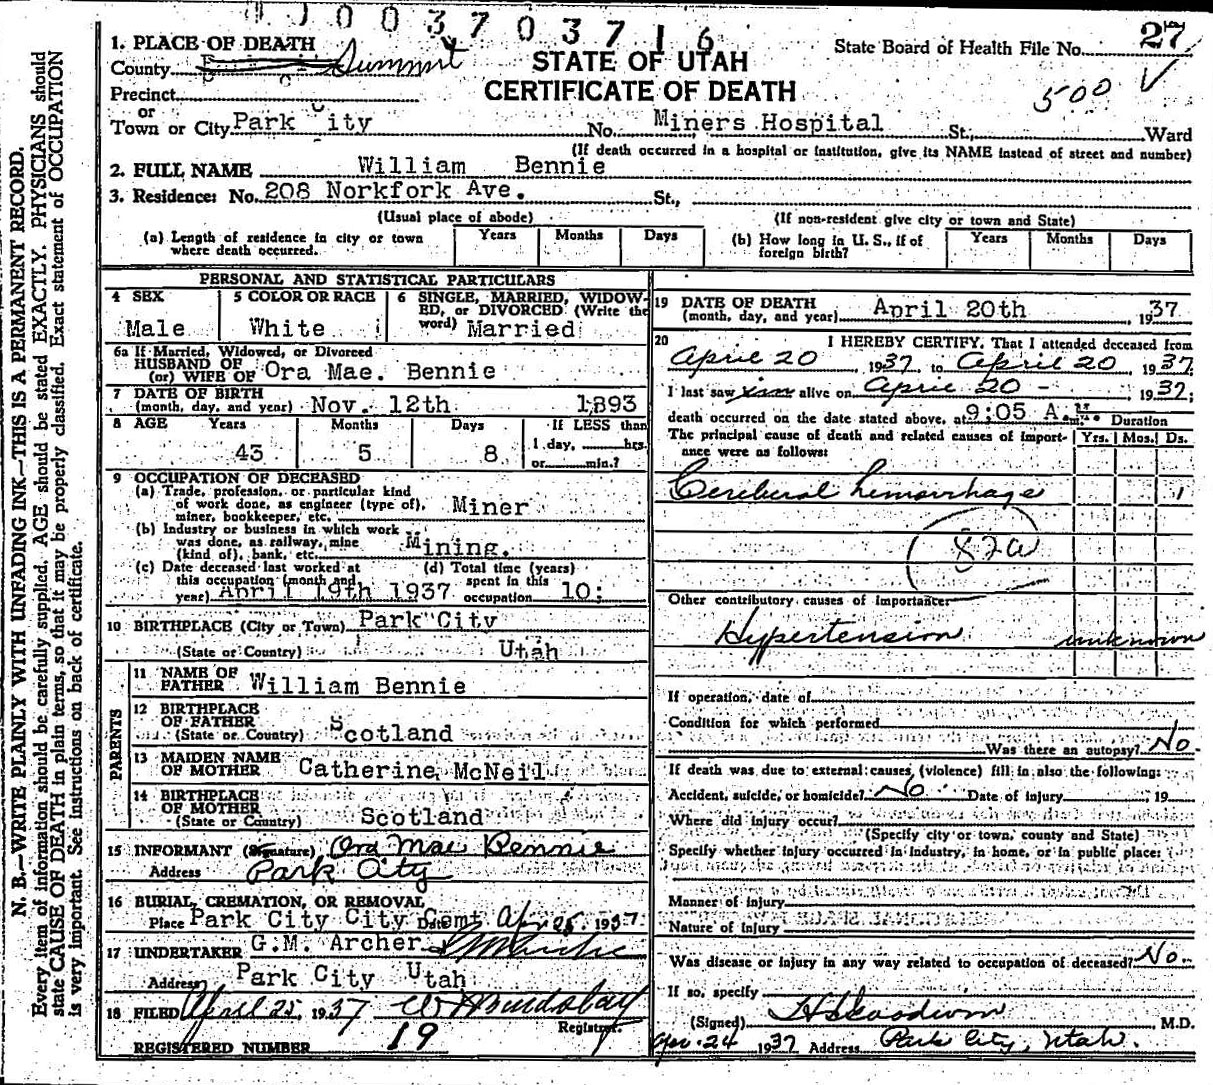 1003703716
27
State Board of Health File No.
500 ✓
1. PLACE OF DEATH
County Summit
STATE OF UTAH
CERTIFICATE OF DEATH
Precinct
or
Town or City Park City No. Miners Hospital St., Ward
(If death occurred in a hospital or institution, give its NAME instead of street and number)
2. FULL NAME William Bennie
3. Residence: No. 208 Norkfork Ave. St.,
(Usual place of abode) (If non-resident give city or town and State)
(a) Length of residence in city or town where death occurred. Years Months Days (b) How long in U. S., if of foreign birth? Years Months Days
PERSONAL AND STATISTICAL PARTICULARS
4 SEX 5 COLOR OR RACE 6 SINGLE, MARRIED, WIDOW-
ED, or DIVORCED (Write the
Male White word) Married
6a If Married, Widowed, or Divorced
HUSBAND OF
(or) WIFE OF Ora Mae. Bennie
7 DATE OF BIRTH
(month, day, and year) Nov. 12th 1893
8 AGE Years Months Days If LESS than
43 5 8 1 day, hrs.
or min.?
9 OCCUPATION OF DECEASED
(a) Trade, profession, or particular kind
of work done, as engineer (type of),
miner, bookkeeper, etc. Miner
(b) Industry or business in which work
was done, as railway, mine
(kind of), bank, etc. Mining.
(c) Date deceased last worked at (d) Total time (years)
this occupation (month and spent in this
year) April 19th 1937 occupation 10;
10 BIRTHPLACE (City or Town) Park City
(State or Country) Utah
PARENTS
11 NAME OF
FATHER William Bennie
12 BIRTHPLACE
OF FATHER
(State or Country) Scotland
13 MAIDEN NAME
OF MOTHER Catherine McNeil
14 BIRTHPLACE
OF MOTHER
(State or Country) Scotland
15 INFORMANT (Signature) Ora Mae Bennie
Address Park City
16 BURIAL, CREMATION, OR REMOVAL
Place Park City City Cemt Date Apr 25. 1937
17 UNDERTAKER G.M. Archer
Address Park City Utah
18 FILED April 25, 1937
Registrar
REGISTERED NUMBER 19
19 DATE OF DEATH
(month, day, and year) April 20th, 1937
20 I HEREBY CERTIFY, That I attended deceased from
April 20 1937 to April 20 1937
I last saw him alive on April 20 - 1937;
death occurred on the date stated above, at 9:05 A.M. Duration
The principal cause of death and related causes of import-
ance were as follows: Yrs. Mos. Ds.
Cerebral hemorrhage 1
82a
Other contributory causes of importance:
Hypertension unknown
If operation, date of
Condition for which performed
Was there an autopsy? No
If death was due to external causes (violence) fill in also the following:
Accident, suicide, or homicide? No Date of injury , 19
Where did injury occur?
(Specify city or town, county and State)
Specify whether injury occurred in industry, in home, or in public place:
Manner of injury
Nature of injury
Was disease or injury in any way related to occupation of deceased? No.
If so, specify
(Signed) M.D.
Apr. 24 1937 Address Park City, Utah.
N. B.—WRITE PLAINLY WITH UNFADING INK—THIS IS A PERMANENT RECORD.
Every item of information should be carefully supplied. AGE should be stated EXACTLY. PHYSICIANS should
state CAUSE OF DEATH in plain terms, so that it may be properly classified. Exact statement of OCCUPATION
is very important. See instructions on back of certificate.